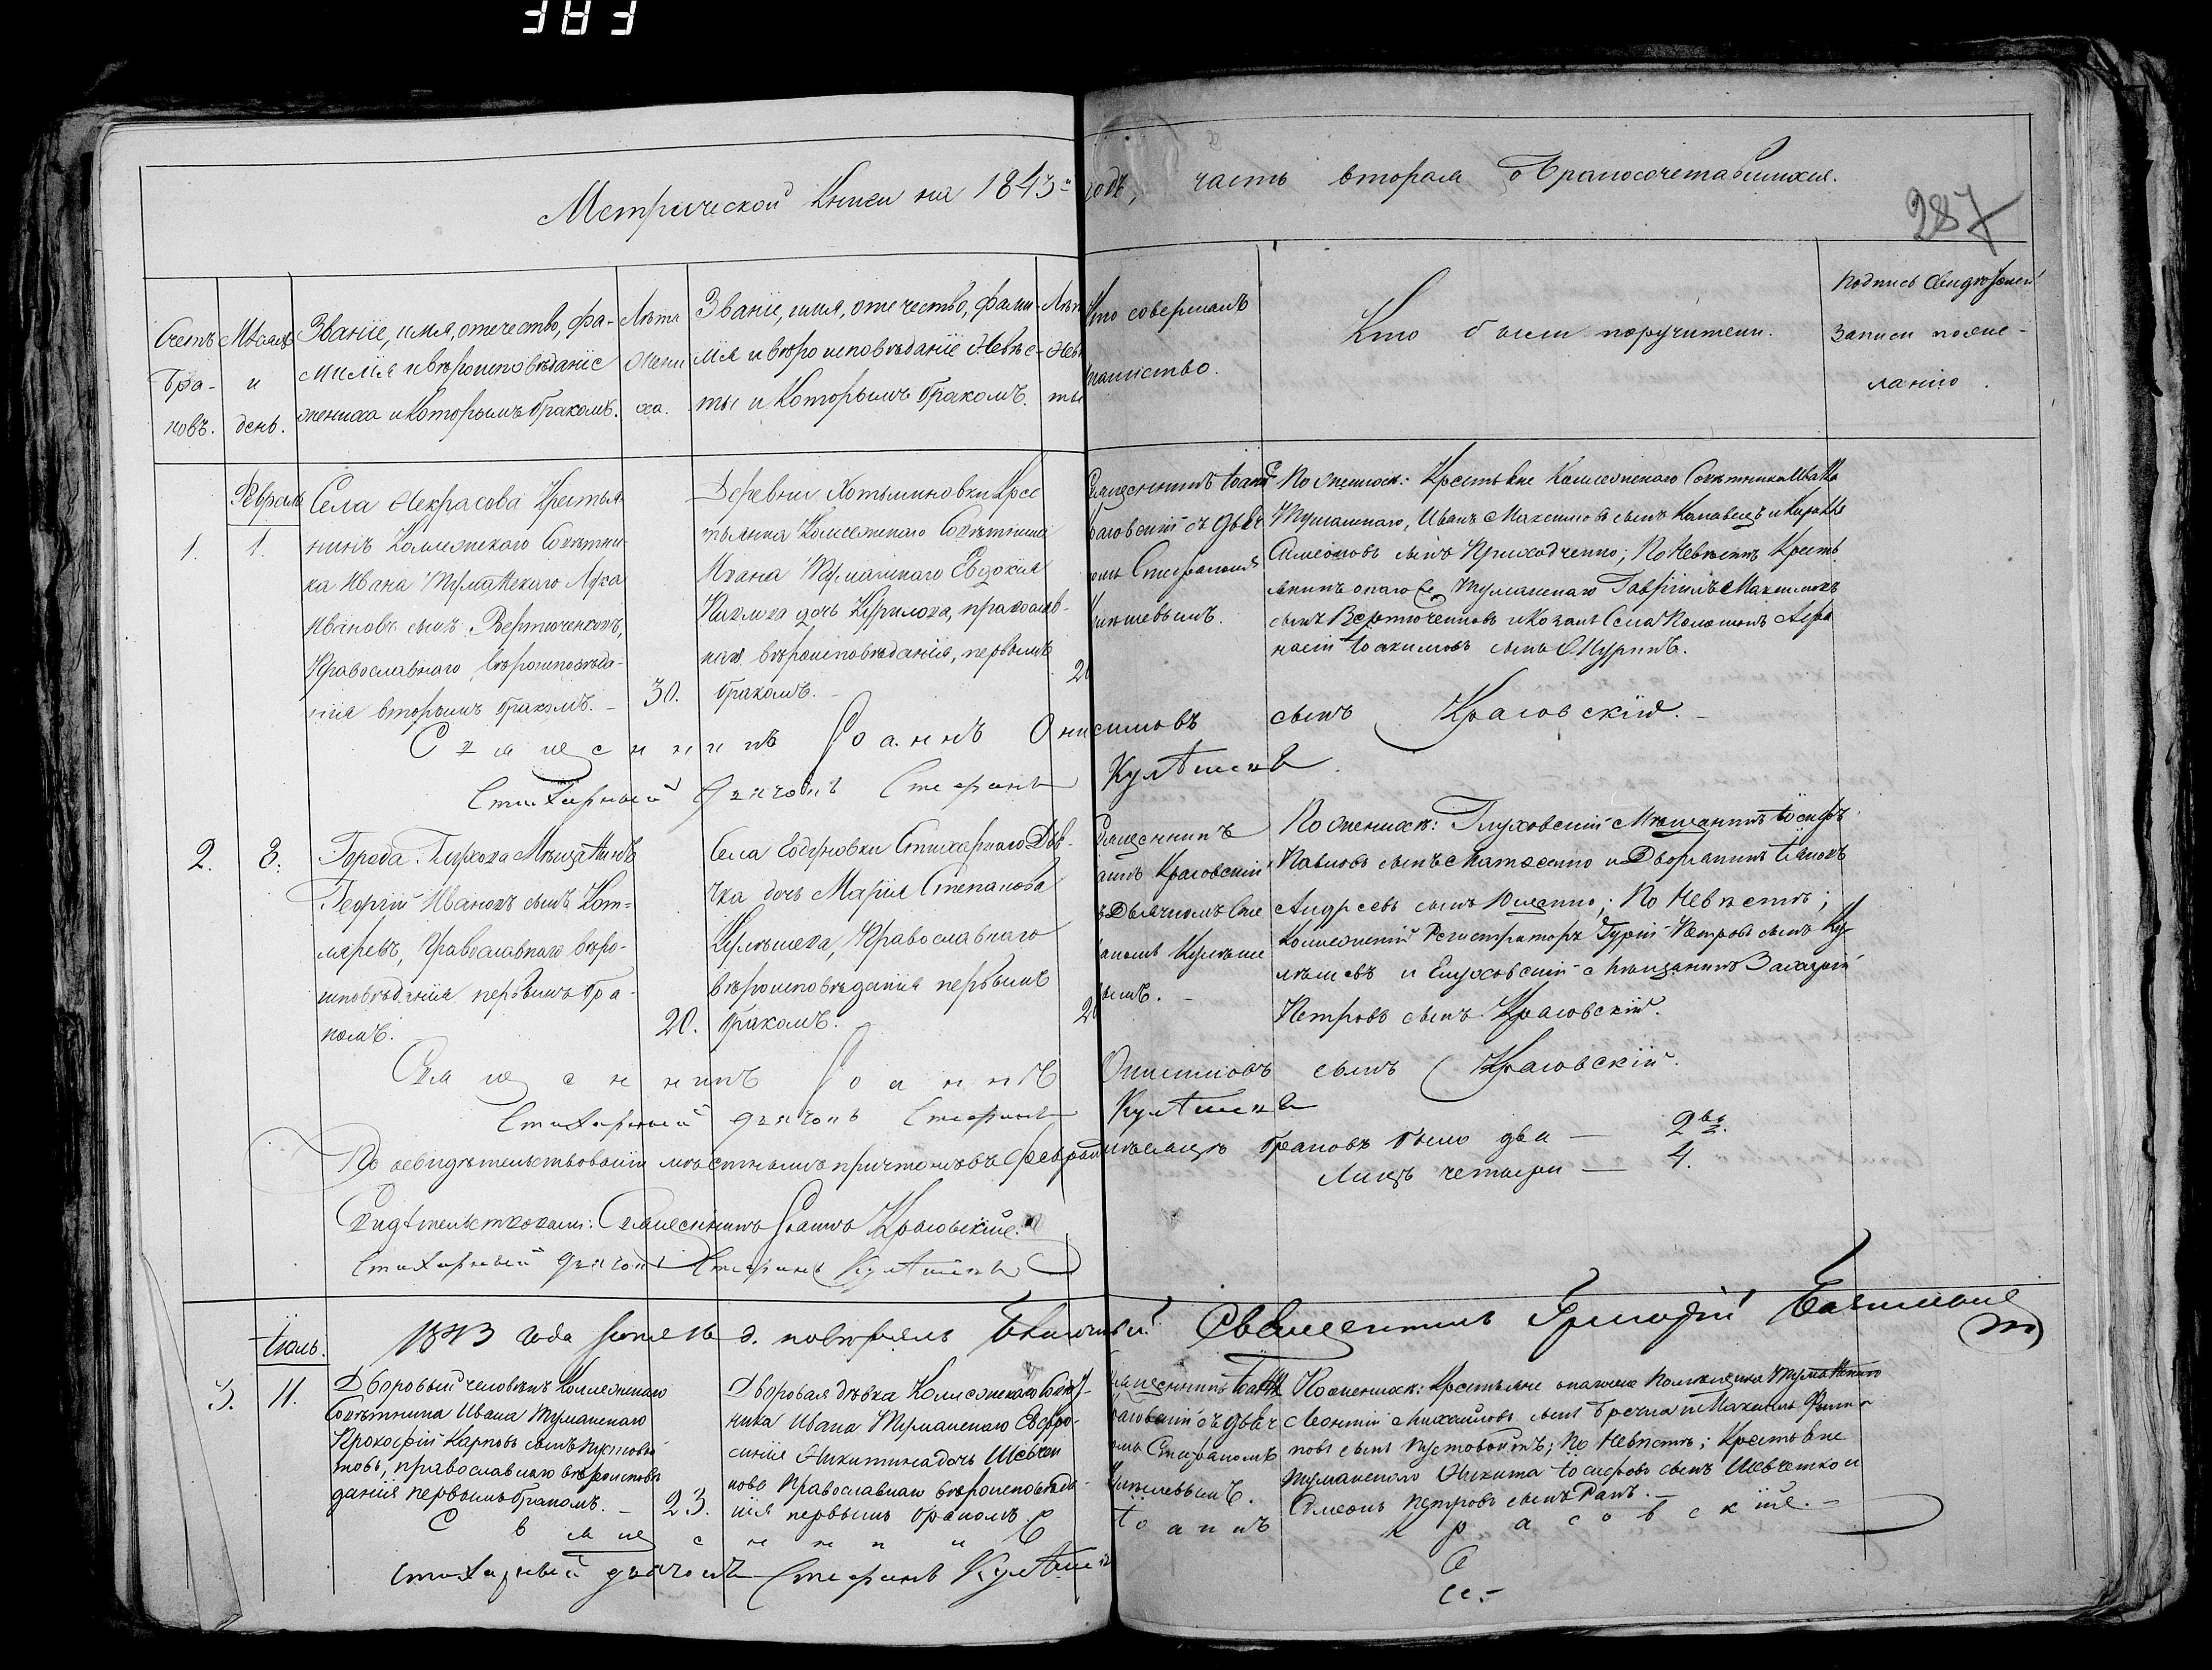 Метрической Книги на 1843й годъ, часть вторая о Бракосочетавшихся.
287
Счетъ бра-ковъ.
Мѣсяцъ и день.
Званіе, имя, отечество, фа-
милія и вѣроисповѣданіе
жениха и которымъ бракомъ.
Лѣта
жени
ха.
Званіе, имя, отечество, фами
лія и вѣроисповѣданіе невѣс-
ты и которымъ бракомъ.
Лѣт
невѣ
ты
Кто совершалъ
таинство.
Кто были поручители.
Подпись свидѣтелей
записи по же-
ланію.
1.
Февраль
1.
Села Некрасова Крестья-
нинъ Коллежскаго Совѣтни-
ка Ивана Туманскаго Лука
Ивановъ сынъ Вертюченковъ,
Православнаго вѣроисповѣда-
нія вторымъ бракомъ.
30.
Деревни Хотьминовки Крес
тьянка Коллежскаго Совѣтника
Ивана Туманскаго Евдокія
Павлова дочь Кирилова, православ-
наго вѣроисповѣданія, первымъ
бракомъ.
20
Священникъ Іоаннъ
раговскій съ дьяч
комъ Стефаномъ
По женихѣ: Крестьяне Коллежскаго Совѣтника Ивана
Туманскаго, Иванъ Максимовъ сынъ
Симеоновъ сынъ Приходченко; По Невѣстѣ Кресть
янинъ онаго Туманскаго Гавріилъ Максимовъ
сынъ Вертюченковъ и Козакъ Села
Іоакимовъ сынъ
Священникъ Іоаннъ Онисимовъ сынъ Краговскій.
Стихарный дьячокъ Стефанъ Кулѣшевъ
2.
8.
Города Глухова Мѣщанинъ
Георгій Ивановъ сынъ Кот-
ляревъ, Православнаго вѣро-
исповѣданія первымъ бра-
комъ.
20.
Села Годуновки Стихарнаго Дья-
чка дочь Марія Степанова
Кулѣшева, Православнаго
вѣроисповѣданія первымъ
бракомъ.
20
Священникъ
аннъ Краговскій
ъ Дьячкомъ Сте
аномъ Кулѣше
вымъ.
По женихѣ: Глуховскій Мѣщанинъ Іосифъ
Павловъ сынъ и Дворянинъ
Андреевъ сынъ; По Невѣстѣ;
Коллежскій Регистраторъ Гурій Петровъ сынъ Ку-
лѣшевъ и Глуховскій Мѣщанинъ Захарій
Петровъ сынъ Краговскій.
Священникъ Іоаннъ Онисимовъ сынъ Краговскій.
Стихарный дьячокъ Стефанъ Кулѣшевъ
По освидѣтельствованіи мѣстнымъ причтомъ въ Февралѣ мѣсяцѣ браковъ было два — 2ва.
Лицъ четыри — 4.
Свидѣтельствовали: Священникъ Іоаннъ Краговскій.
Стихарный дьячокъ Стефанъ Кулѣшевъ
1843 года Іюня 16 д. повѣрялъ Священникъ Григорій
Іюль.
3.
11.
Дворовый человѣкъ Коллежскаго
Совѣтника Ивана Туманскаго
Прокофій Карповъ сынъ Пустовой
товъ, православнаго вѣроисповѣ
данія первымъ бракомъ.
23.
Дворовая дѣвка Коллежскаго Совѣт-
ника Ивана Туманскаго Евфро-
синія Никитина дочь Шевчен
кова Православнаго вѣроисповѣда-
нія первымъ бракомъ.
Священникъ Іоаннъ
раговскій съ дьяч
комъ Стефаномъ
Кулѣшевымъ.
По женихѣ: Крестьяне онаго Помѣщика Туманскаго
Леонтій Михайловъ сынъ и Максимъ
сынъ Пустовойтъ; По Невѣстѣ; Крестьяне
Туманскаго Никита Іосифовъ сынъ Шевченко и
Симеонъ Петровъ сынъ
Священникъ Іоаннъ Краговскій.
Стихарный дьячокъ Стефанъ Кулѣшевъ